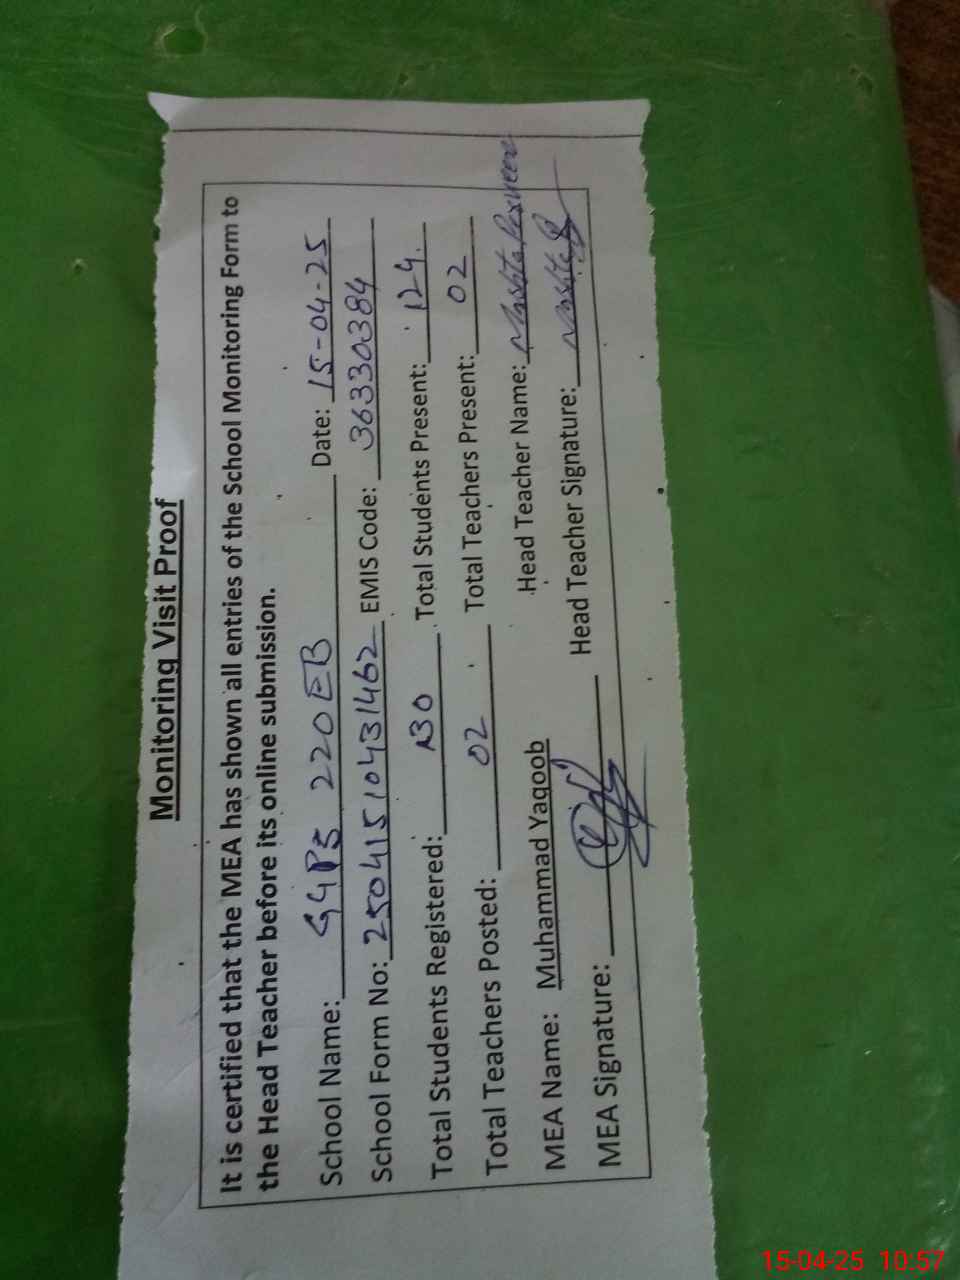 Monitoring Visit Proof
It is certified that the MEA has shown all entries of the School Monitoring Form to
the Head Teacher before its online submission.
School Name: GGPS 220 EB Date: 15-04-25
School Form No: 25041510431462 EMIS Code: 36330384
Total Students Registered: 130 Total Students Present: 124
Total Teachers Posted: 02 Total Teachers Present: 02
MEA Name: Muhammad Yaqoob Head Teacher Name: Perveen
MEA Signature: Head Teacher Signature:
15-04-25 10:57